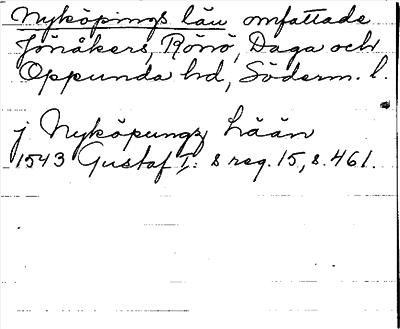 Nyköpings län omfattade
Jönåkers, Rönö, Daga och
Oppunda hd, Söderm. l.
j Nyköpungz Lään
1543 Gustaf I: s reg. 15, s. 461.